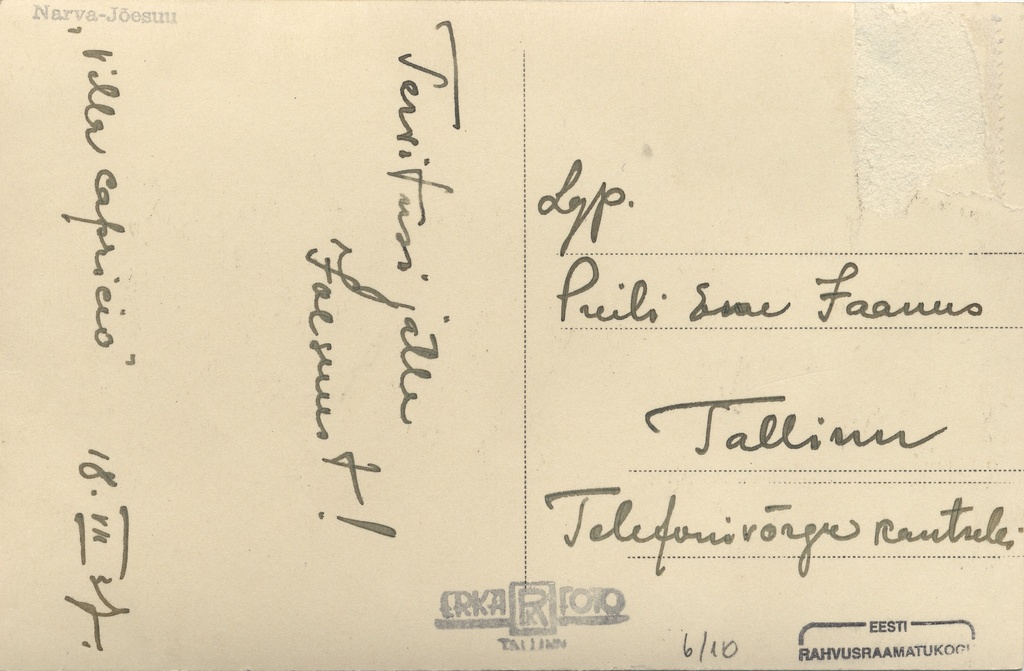 Narva-Jõesuu
„Villa capricio”
18. VII 37.
Tervitusi jälle
Joesuust!
Lgp.
Preili Jaanus
Tallinn
Telefonivõrgu kantselei
ERKA FOTO
TALLINN
6/10
EESTI
RAHVUSRAAMATUKOGU